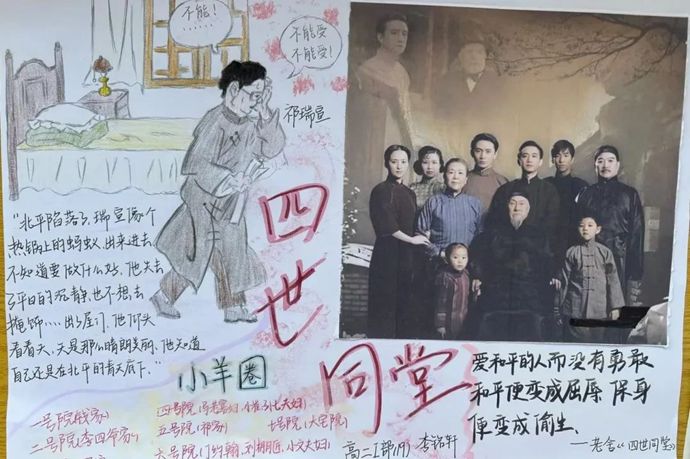 不能!
......
不能受
不能受!
祁瑞宣
四世同堂
"北平陷落了,瑞宣像个
热锅上的蚂蚁,出来进去,
不知道要做什么好。他失去
了平日的沉静,也不想去
掩饰……出了屋门,他仰头
看看天,天是那么晴朗美丽,他知道
自己还是在北平的青天底下。"
小羊圈
一号院(钱家)
二号院(李四爷家)
四号院
五号院(祁家)
七号院(大杂院)
六号院(丁约翰,刘棚匠,小文夫妇)
高二I部(19) 李铭轩
爱和平的人而没有勇敢
和平便变成屈辱,保身
便变成偷生、
——老舍《四世同堂》